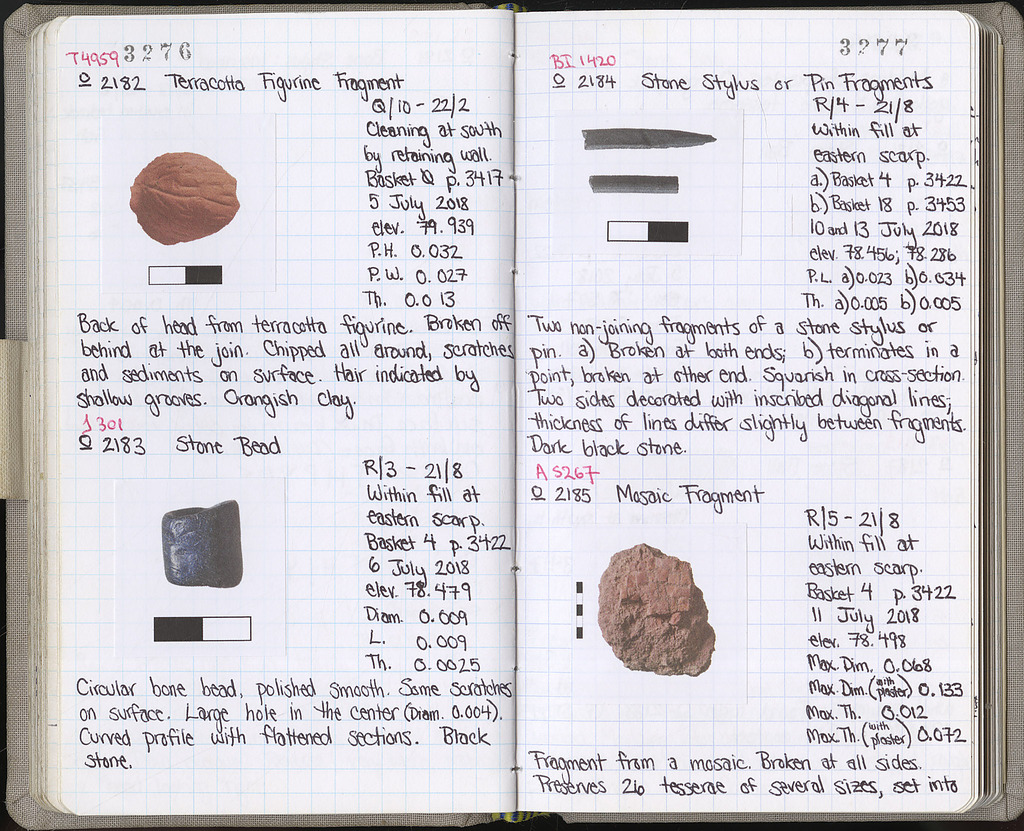 T4959 3276
O 2182 Terracotta Figurine Fragment
Q/10 - 22/2
Cleaning at south
by retaining wall.
Basket Q p. 3417
5 July 2018
elev. 79.939
P.H. 0.032
P.W. 0.027
Th. 0.013
Back of head from terracotta figurine. Broken off
behind at the join. Chipped all around, scratches
and sediments on surface. Hair indicated by
shallow grooves. Orangish clay.
J 301
O 2183 Stone Bead
R/3 - 21/8
Within fill at
eastern scarp.
Basket 4 p. 3422
6 July 2018
elev. 78.479
Diam. 0.009
L. 0.009
Th. 0.0025
Circular bone bead, polished smooth. Some scratches
on surface. Large hole in the center (Diam. 0.004).
Curved profile with flattened sections. Black
stone.
3277
BI 1420
O 2184 Stone Stylus or Pin Fragments
R/4 - 21/8
Within fill at
eastern scarp.
a.) Basket 4 p. 3422
b.) Basket 18 p. 3453
10 and 13 July 2018
elev. 78.456; 78.286
P.L. a) 0.023 b) 0.034
Th. a) 0.005 b) 0.005
Two non-joining fragments of a stone stylus or
pin. a) Broken at both ends; b) terminates in a
point, broken at other end. Squarish in cross-section.
Two sides decorated with inscribed diagonal lines;
thickness of lines differ slightly between fragments.
Dark black stone.
A 5267
O 2185 Mosaic Fragment
R/5 - 21/8
Within fill at
eastern scarp.
Basket 4 p. 3422
11 July 2018
elev. 78.498
Max. Dim. 0.068
Max. Dim. (with plaster) 0.133
Max. Th. 0.012
Max Th. (with plaster) 0.072
Fragment from a mosaic. Broken at all sides.
Preserves 26 tesserae of several sizes, set into